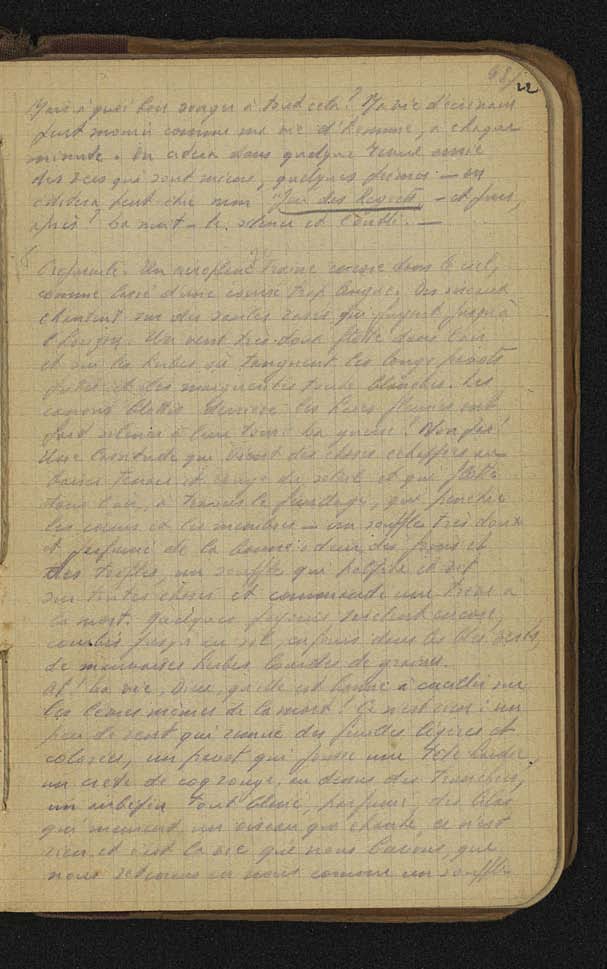 22
Mais à quoi bon songer à tout cela? Ma vie d'écrivain
peut mourir comme ma vie d'homme, à chaque
minute. On citera dans quelque revue amie
des vers qui sont miens, quelques poèmes — on
éditera peut être mon Jeu des Regrets — et puis,
après? La mort — le silence et l'oubli. —
Crépuscule. Un aéroplane traine encore dans le ciel,
comme lassé d'une course trop longue. Des oiseaux
chantent sur des saules qui jusqu'à
Un vent très doux flotte dans l'air
et sur les herbes où tanguent les longs pavots
et les marguerites toutes blanches. Les
canons blottis derrière les haies fleuries ont
fait silence à leur tour. La guerre! Non pas!
Une lassitude qui vient des choses échauffées au
baiser tenace et rouge du soleil et qui flotte
dans l'air, à travers le feuillage, qui penche
les cœurs et les membres — un souffle très doux
et parfumé de la bonne odeur des foins et
des trèfles, un souffle qui palpite et vit
sur toutes choses et commande une trève à
la mort. Quelques paysans sarclent encore,
courbés jusqu'au sol, enfouis dans les blés verts,
de mauvaises herbes lourdes de graines.
Ah! La vie, Dieu, qu'elle est bonne à cueillir sur
les lèvres mêmes de la mort! Ce n'est rien: un
peu de vent qui remue des feuilles légères et
colorées, un pavot qui pousse une tête hardie,
un crête de coq rouge, au dessus des tranchées,
un tout blanc, parfumé, des lilas
qui meurent un oiseau qui chante, ce n'est
rien et c'est la vie que nous buvons, que
nous retenons en nous comme un souffle